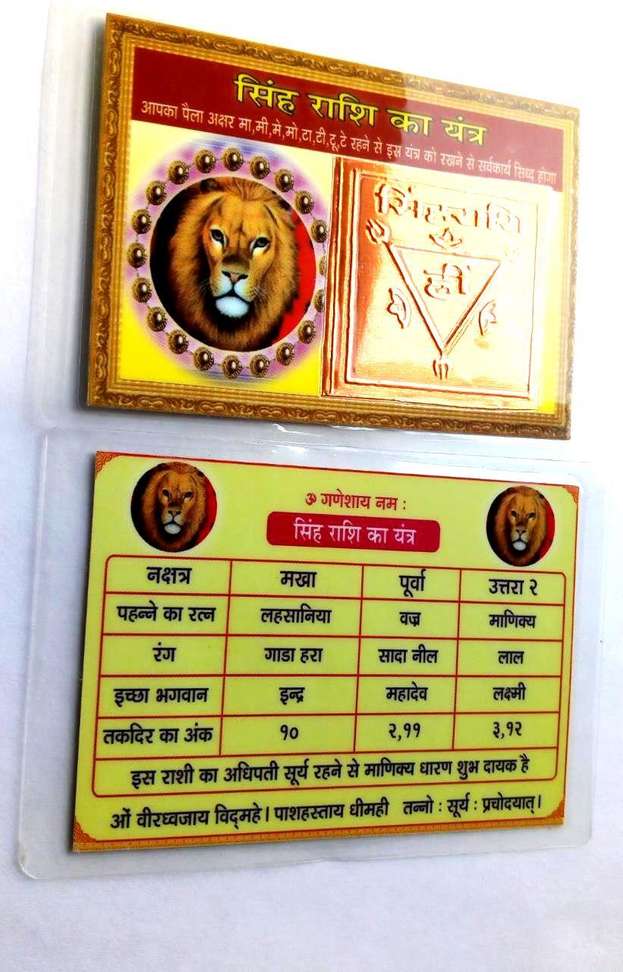 सिंह राशि का यंत्र
आपका पैला अक्षर मा,मी,मे,मो,टा,टी,टू,टे रहने से इस यंत्र को रखने से सर्वकार्य सिध्द होगा
सिंहराशि
ह्रीं
ॐ गणेशाय नम :
सिंह राशि का यंत्र
नक्षत्र मखा पूर्वा उत्तरा २
पहन्ने का रत्न लहसानिया वज्र माणिक्य
रंग गाडा हरा सादा नील लाल
इच्छा भगवान इन्द्र महादेव लक्ष्मी
तकदिर का अंक १० २,११ ३,१२
इस राशी का अधिपती सूर्य रहने से माणिक्य धारण शुभ दायक है
ओं वीरध्वजाय विद्महे। पाशहस्ताय धीमही तन्नो : सूर्य : प्रचोदयात्।